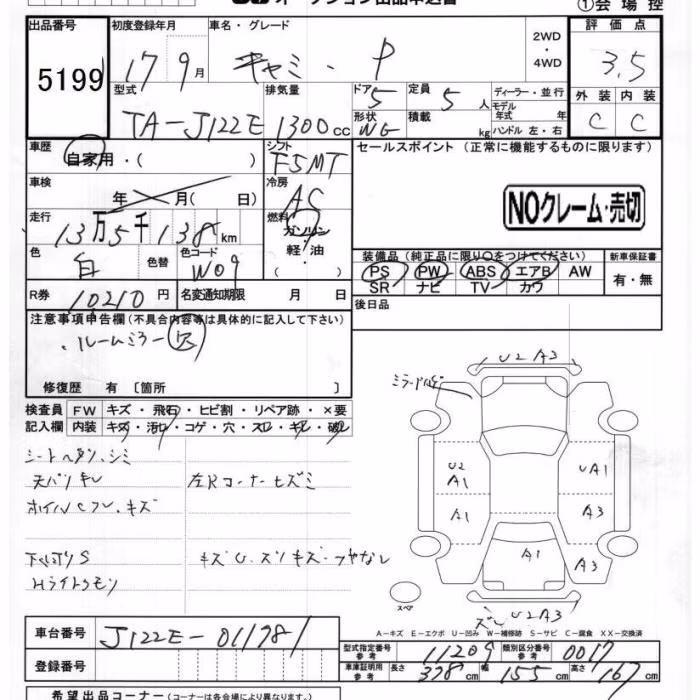 出品番号 初度登録年月 車名・グレード 2WD・4WD 評価点
5199 17年 9月 キャミ・P 3.5
型式 排気量 ドア 5 定員 5人 ディーラー・並行 外装 内装
TA-J122E 1300cc 形状 WG 積載 kg モデル年式 年 ハンドル 左・右 C C
車歴 自家用・( ) シフト F5MT セールスポイント (正常に機能するものに限ります)
車検 年 月( 日) 冷房 AC
NOクレーム・売切
走行 13万5千138km 燃料 ガソリン・軽油 ( )
色 白 色替 色コード W09
装備品 (純正品に限り○をつけてください) 新車保証書
PS PW ABS エアB AW 有・無
SR ナビ TV カワ
R券 10210円 名変通知期限 月 日 後日品
注意事項申告欄(不具合内容等は具体的に記入して下さい)
・ルームミラー欠
修復歴 有 〔箇所 〕
検査員 FW キズ・飛石・ヒビ割・リペア跡・×要
記入欄 内装 キズ・汚れ・コゲ・穴・スレ・キレ・破レ
シートヘタリ、シミ
天バリキレ 左Rコーナーヒズミ
ホイルCフレ、キズ
下廻りS キズU、スリキズ・ツヤなし
Hライトクモリ
U2 A3
U2 A1 UA1
A1 A3
A1 A3
U2A3
スペア
A-キズ E-エクボ U-凹み W-補修跡 S-サビ C-腐食 XX-交換済
車台番号 J122E-011781
型式指定番号 参考 11209 類別区分番号 参考 0017
登録番号
車庫証明用 参考 長さ 378cm 幅 155cm 高さ 167cm
希望出品コーナー(コーナーは各会場により異なります)